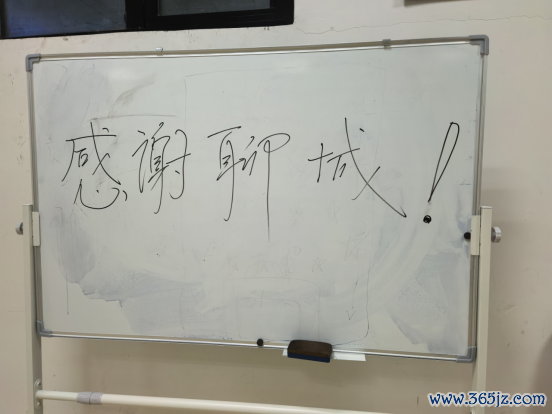 感謝聊城！
www.365jz.com